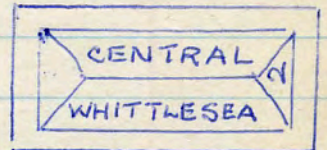 CENTRAL
2
WHITTLESEA